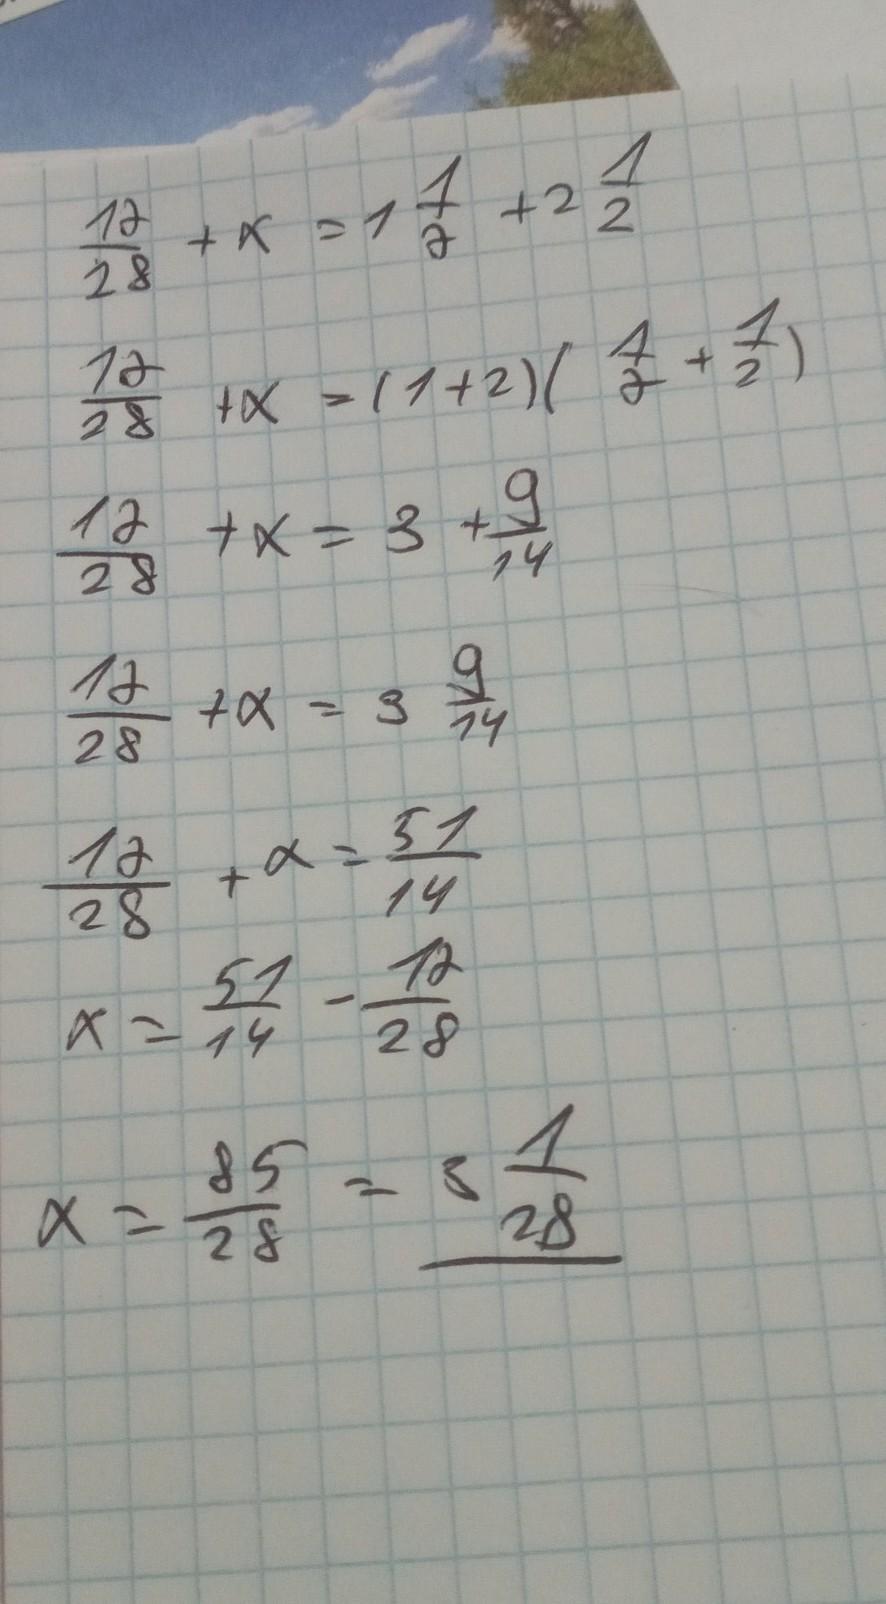 17/28 + x = 1 1/7 + 2 1/2
17/28 + x = (1+2)( 1/7 + 1/2 )
17/28 + x = 3 + 9/14
17/28 + x = 3 9/14
17/28 + x = 51/14
x = 51/14 - 17/28
x = 85/28 = 3 1/28